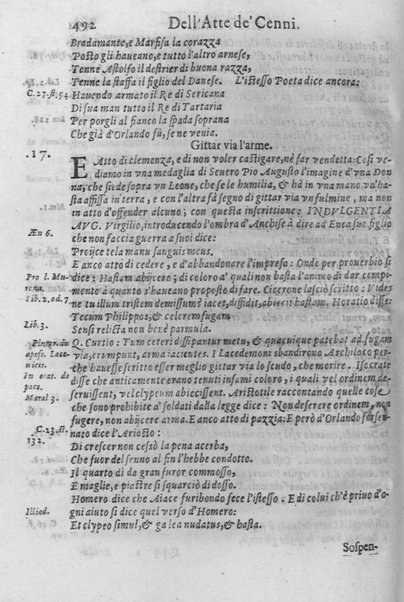 492 Dell'Atte de' Cenni.
Bradamante, e Marfisa la corazza
Posto gli haueano, e tutto l'altro arnese,
Tenne Astolfo il destrier di buona razza,
Tenne la staffa il figlio del Danese. L'istesso Poeta dice ancora:
C. 27. st. 54. Hauendo armato il Re di Sericana
Di sua man tutto il Re di Tartaria
Per porgli al fianco la spada soprana
Che già d'Orlando fù, se ne venia.
Gittar via l'arme.
.17. E Atto di clemenza, e di non voler castigare, nè far vendetta: Così ve
diamo in vna medaglia di Seuero Pio Augusto l'imagine d'vna Don
na, che siede sopra vn Leone, che se le humilia, & hà in vna mano vn'ha
sta affissa in terra, e con l'altra fà segno di gittar via vn fulmine, ma non
in atto d'offender alcuno; con questa inscrittione: INDVLGENTIA
Æn 6. AVG. Virgilio, introducendo l'ombra d'Anchise à dire ad Enea suo figlio
che non faccia guerra a suoi dice:
Proijce tela manu sanguis meus.
E anco atto di cedere, e d'abbandonare l'impresa: Onde per prouerbio si
Pro l. Mu- dice: Hastam abijcere; di coloro a' quali non basta l'animo di dar compi
rena. mento à quanto s'haueano proposito di fare. Cicerone lasciò scritto: Vides
Lib. 2. od. 7. ne tu illum tristem demissum? iacet, diffidit, abiecit hastam. Horatio disse:
Tecum Philippos, & celerem fugam
Lib. 3. Sensi relicta non benè parmula.
Plutar. in Q. Curtio: Tum ceteri dissipantur metu, & quacuique patebat ad fugam
apoft. Lace- via, erumpunt, arma iacentes. I Lacedemoni sbandirono Archiloco per-
nicos. che hauesse scritto esser meglio gittar via lo scudo, che morire. Isocrate
In orat. de pace. disse che anticamente erano tenuti infami coloro, i quali vel ordinem de-
seruissent, vel clypeum abiecissent. Aristotile raccontando quelle cose
Moral 3. che sono prohibite a' soldati dalla legge dice: Non deserere ordinem, non
fugere, non abijcere arma. E anco atto di pazzia: E però d'Orlando forsen-
C. 23. st. 132. nato dice l'Ariosto:
Di crescer non cessò la pena acerba,
Che fuor del senno al fin l'hebbe condotto.
Il quarto dì da gran furor commosso,
E maglie, e piastre si squarciò di dosso.
Homero dice che Aiace furibondo fece l'istesso. E di colui ch'è priuo d'o-
Iliad. gni aiuto si dice quel verso d'Homero:
Et clypeo simul, & galea nudatus, & hasta.
Sospen-